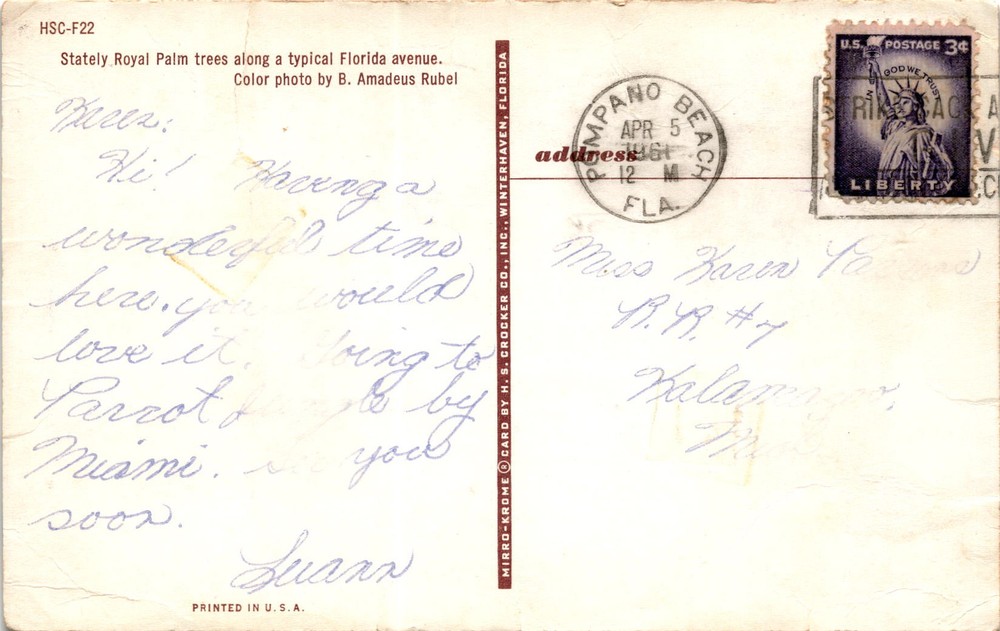 HSC-F22
Stately Royal Palm trees along a typical Florida avenue.
Color photo by B. Amadeus Rubel
Hi! Having a
wonderful time
here. you would
love it. Going to
Parrot Jungle by
Miami. you
soon.
Luann
PRINTED IN U.S.A.
MIRRO-KROME® CARD BY H. S. CROCKER CO., INC., WINTERHAVEN, FLORIDA
address
POMPANO BEACH
APR 5
1961
12 M
FLA.
U.S. POSTAGE 3¢
IN GOD WE TRUST
LIBERTY
Miss Karen
R.R. #7
Kalamazoo,